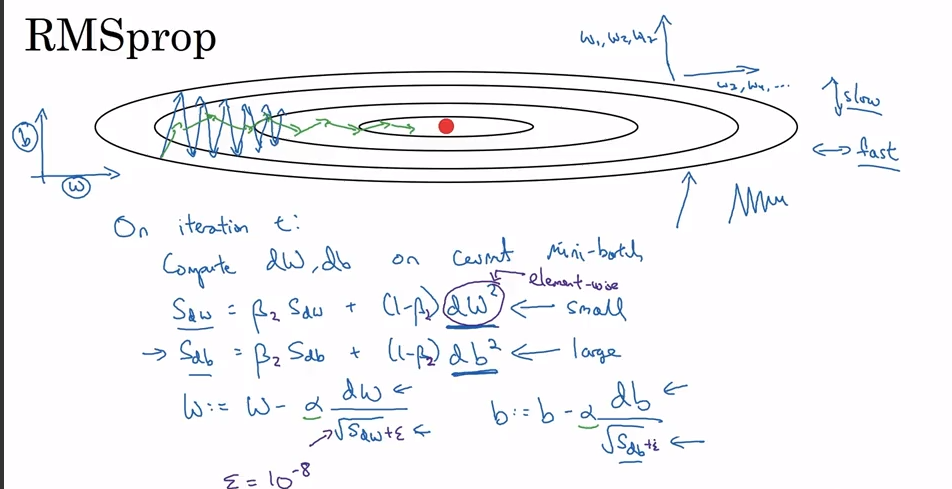 RMSprop
w₁, w₂, w₂
w₃, w₄, ...
slow
fast
b
w
On iteration t:
Compute dW, db on current mini-batch
element-wise
S_dw = β₂ S_dw + (1-β₂) dW² ← small
→ S_db = β₂ S_db + (1-β₂) db² ← large
W := W - α dW / √S_dw + ε ← b := b - α db / √S_db + ε ←
ε = 10⁻⁸